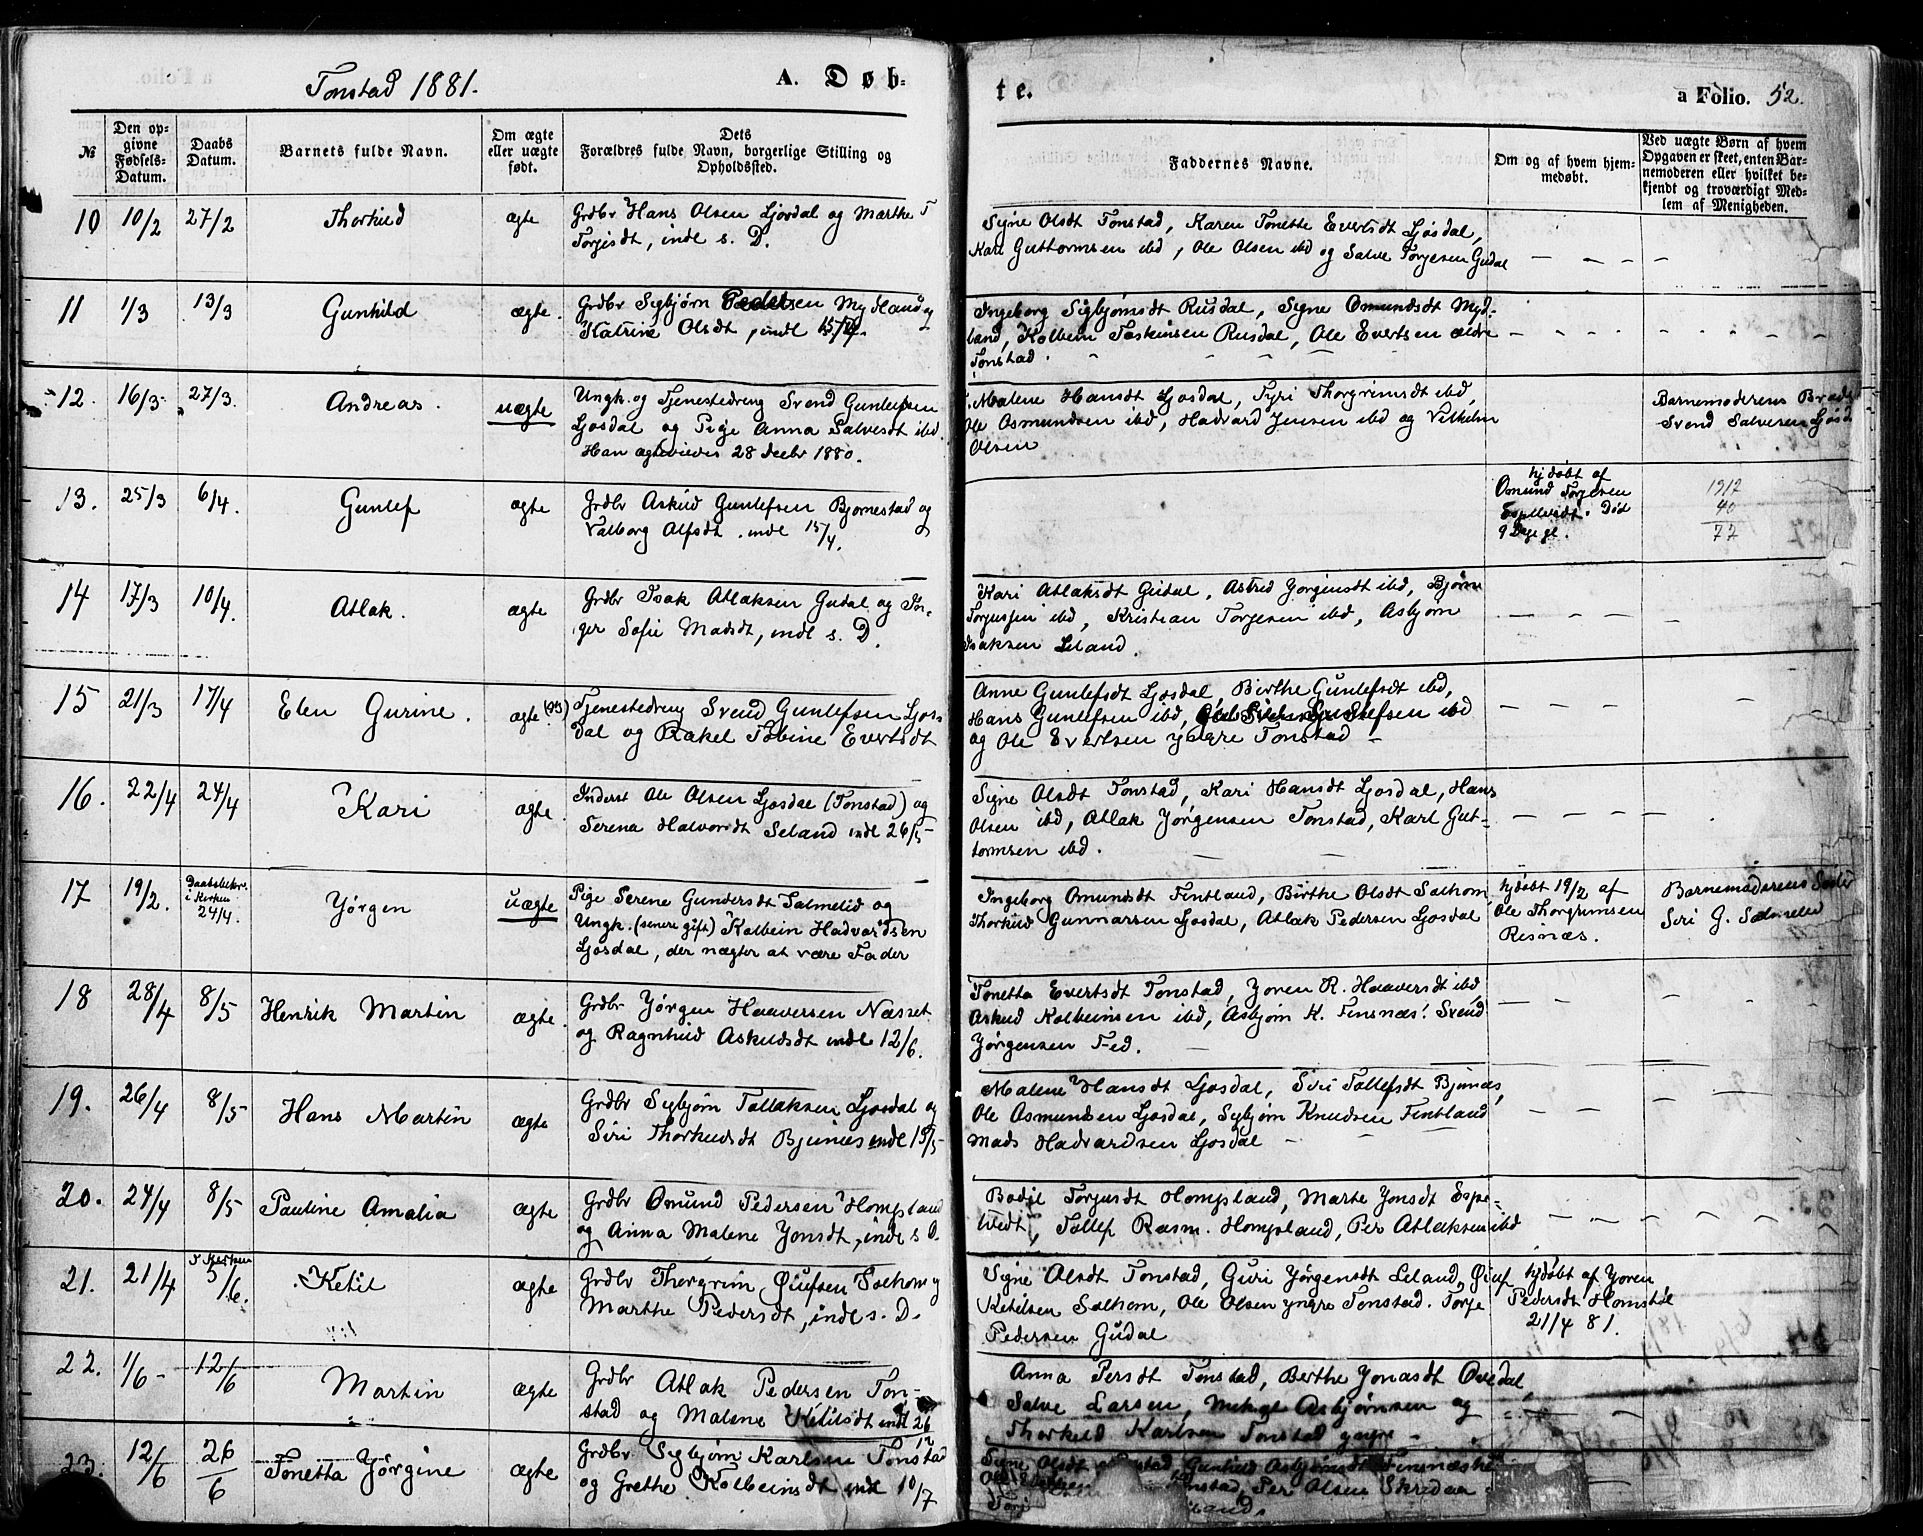 Tonstad 1881.
A. Døb-
№
Den op-
givne
Fødsels-
Datum.
Daabs
Datum.
Barnets fulde Navn.
Om ægte
eller uægte
født.
Dets
Forældres fulde Navn, borgerlige Stilling og
Opholdssted.
10 10/2 27/2 Thorkild ægte Grdbr Hans Olsen Ljosdal og Marthe T
Torjisdt, indl s. D.
11 1/3 13/3 Gunhild ægte. Grdbr Sigbjørn Pedersen Mydland og
Katrine Olsdt, indl 15/4.
12. 16/3 27/3. Andreas. uægte Ungk. og Tjenestedreng Svend Gunlefsen
Ljosdal og Pige Anna Salvesdt ibd.
Han ægteviedes 28 Decbr 1880.
13. 25/3 6/4. Gunlef ægte Grdbr Askild Gunlefsen Bjornestad og
Valborg Alfsdt. indl 15/4.
14 17/3 10/4. Atlak. ægte Grdbr Isak Atlaksen Gudal og Tor-
ger Sofie Madsdt, indl s. D.
15 21/3 17/4 Elen Gurine. ægte Tjenestedreng Svend Gunlefsen Ljos-
dal og Rakel Tobine Evertsdt
16. 22/4 24/4 Kari ægte Inderst Ole Olsen Ljosdal (Tonstad) og
Serena Halvorsdt Seland indl 26/5 -
17 19/2. Daabsbekr.
i Kirken
24/4. Yørgen uægte Pige Serene Gundersdt Salmelid og
Ungk. (senere gift) Kolbein Hadvardsen
Ljosdal, der nægter at være Fader
18 28/4 8/5 Henrik Martin ægte. Grdbr Yørgen Haaversen Næsset
og Ragnhild Askildsdt indl 12/6.
19. 26/4 8/5 Hans Martin ægte Grdbr Sigbjørn Tallaksen Ljosdal og
Siri Thorkildsdt Bjunes indl 15/5-
20. 24/4 8/5 Pauline Amalia ægte Grdbr Omund Pedersen Hompland
og Anna Malene Yonsdt, indl s D.
21. 21/4 I Kirken
5/6. Ketil ægte Grdbr Thorgrim Øiufsen Salhom og
Marthe Pedersdt, indl s. D.
22. 1/6 - 12/6 Martin ægte Grdbr Atlak Pedersen Ton-
stad og Malene Ketilsdt indl 26
23. 12/6 26/6 Tonetta Yørgine ægte Grdbr Sigbjørn Karlsen Tonstad
og Grethe Kolbeinsdt indl 10/7
te.
a Folio. 52.
Faddernes Navne.
Om og af hvem hjem-
medøbt.
Ved uægte Børn af hvem
Opgaven er skeet, enten Bar-
nemoderen eller hvilket be-
kjendt og troværdigt Med-
lem af Menigheden.
Signe Olsdt Tonstad, Karen Tonette Evertsdt Ljosdal,
Karl Guttormsen ibd, Ole Olsen ibd og Salve Torjesen Gudal
Ingeborg Sigbjørnsdt Rusdal, Signe Omundsdt Myd-
land, Kolbein Taskinsen Rusdal, Ole Evertsen ældre
Tonstad.
Malene Hansdt Ljosdal, Tyri Thorgrimsdt ibd,
Ole Osmundsen ibd, Hadvard Jensen ibd og Vilhelm
Olsen
Barnemoderens Broder
Svend Salvesen Ljosd
hjdøbt af
Omund Torjesen
Espetvedt. Død
9 Dage gl.
1917
40
77
Kari Atlaksdt Gudal, Astrid Yorgensdt ibd, Bjørn
Torjussen ibd, Kristian Torjesen ibd, Asbjørn
Isaksen Leland.
Anne Gunlefsdt Ljosdal, Birthe Gunlefsdt ibd,
Hans Gunlefsen ibd, Gunlefsen ibd
og Ole Evertsen yngre Tonstad -
Signe Olsdt Tonstad, Kari Hansdt Ljosdal, Hans
Olsen ibd, Atlak Jørgensen Tonstad, Karl Gut-
tormsen ibd.
Ingeborg Omundsdt Fintland, Birthe Olsdt Salhom
Thorkild Gunnarsen Ljosdal, Atlak Pedersen Ljosdal
hjdøbt 19/2 af
Ole Thorgrimsen
Risnæs.
Barnemoderens Søster
Siri G. Salmelid
Tonetta Evertsdt Tonstad, Yoren R. Haaversdt ibd,
Askild Kolbeinsen ibd, Asbjørn K. Finsnæs, Svend
Yørgensen Fed.
Malene Hansdt Ljosdal, Siri Tollefsdt Bjunes,
Ole Osmundsen Ljosdal, Sigbjørn Knudsen Fintland
Mads Hadvardsen Ljosdal
Bodil Torjusdt Hompland, Marte Yonsdt Espe-
tvedt, Tollef Rasm. Hompland, Per Atlaksen ibd
Signe Olsdt Tonstad, Guri Yørgensdt Leland, Øiuf
Ketilsen Salhom, Ole Olsen yngre Tonstad. Torje
Pedersen Gudal
hjdøbt af Yoren
Pedersdt Homstøl
21/4 81.
Anna Persdt Tonstad, Berthe Yonasdt Ovedal,
Salve Larsen, Mikal Asbjørnsen og
Thorkild Karlsen Tonstad yngre -
Signe Olsdt Gunhild Asbjørnsdt Finsnæs
Tonstad, Per Olsen Skredaa